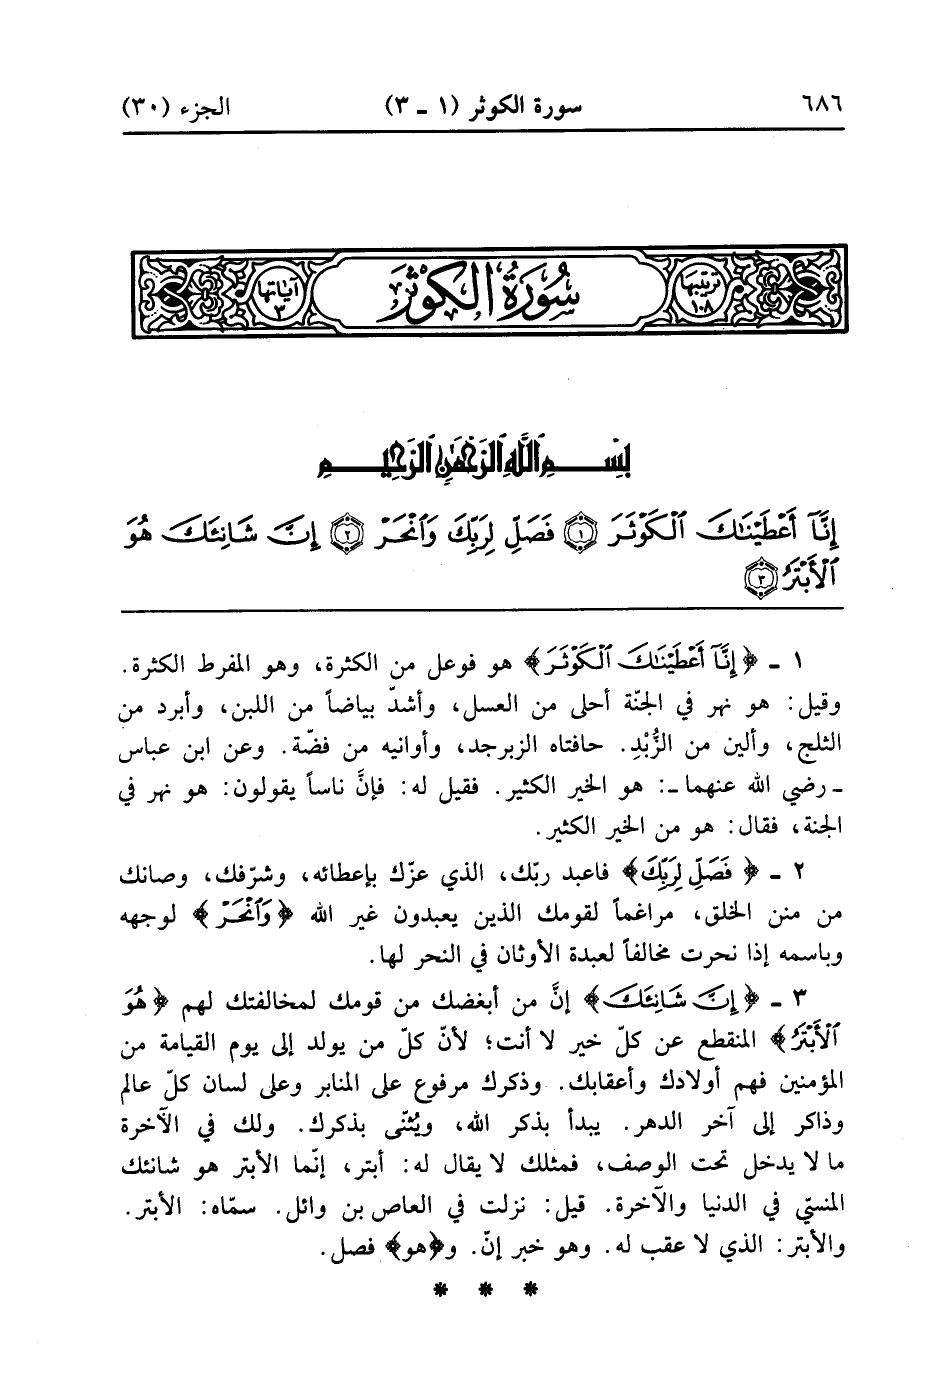 ٦٨٦ سورة الكوثر (١ ـ ٣) الجزء (٣٠)
ترتيبها ١٠٨ سُورَةُ الكَوْثَرَ آياتها ٣
بِسْمِ اللَّهِ الرَّحْمَٰنِ الرَّحِيمِ
إِنَّآ أَعْطَيْنَٰكَ ٱلْكَوْثَرَ ١ فَصَلِّ لِرَبِّكَ وَٱنْحَرْ ٢ إِنَّ شَانِئَكَ هُوَ
ٱلْأَبْتَرُ ٣
١ ـ ﴿إِنَّآ أَعْطَيْنَٰكَ ٱلْكَوْثَرَ﴾ هو فوعل من الكثرة، وهو المفرط الكثرة.
وقيل: هو نهر في الجنّة أحلى من العسل، وأشدّ بياضاً من اللبن، وأبرد من
الثلج، وألين من الزُّبْدِ. حافتاه الزبرجد، وأوانيه من فضّة. وعن ابن عباس
ـ رضي الله عنهما ـ: هو الخير الكثير. فقيل له: فإنَّ ناساً يقولون: هو نهر في
الجنة، فقال: هو من الخير الكثير.
٢ ـ ﴿فَصَلِّ لِرَبِّكَ﴾ فاعبد ربّك، الذي عزّك بإعطائه، وشرّفك، وصانك
من منن الخلق، مراغماً لقومك الذين يعبدون غير الله ﴿وَٱنْحَرْ﴾ لوجهه
وباسمه إذا نحرت مخالفاً لعبدة الأوثان في النحر لها.
٣ ـ ﴿إِنَّ شَانِئَكَ﴾ إنَّ من أبغضك من قومك لمخالفتك لهم ﴿هُوَ
ٱلْأَبْتَرُ﴾ المنقطع عن كلّ خير لا أنت؛ لأنّ كلّ من يولد إلى يوم القيامة من
المؤمنين فهم أولادك وأعقابك. وذكرك مرفوع على المنابر وعلى لسان كلّ عالم
وذاكر إلى آخر الدهر. يبدأ بذكر الله، ويُثنّى بذكرك. ولك في الآخرة
ما لا يدخل تحت الوصف، فمثلك لا يقال له: أبتر، إنّما الأبتر هو شانئك
المنسّي في الدنيا والآخرة. قيل: نزلت في العاص بن وائل. سمّاه: الأبتر.
والأبتر: الذي لا عقب له. وهو خبر إنّ. و﴿هو﴾ فصل.
* * *